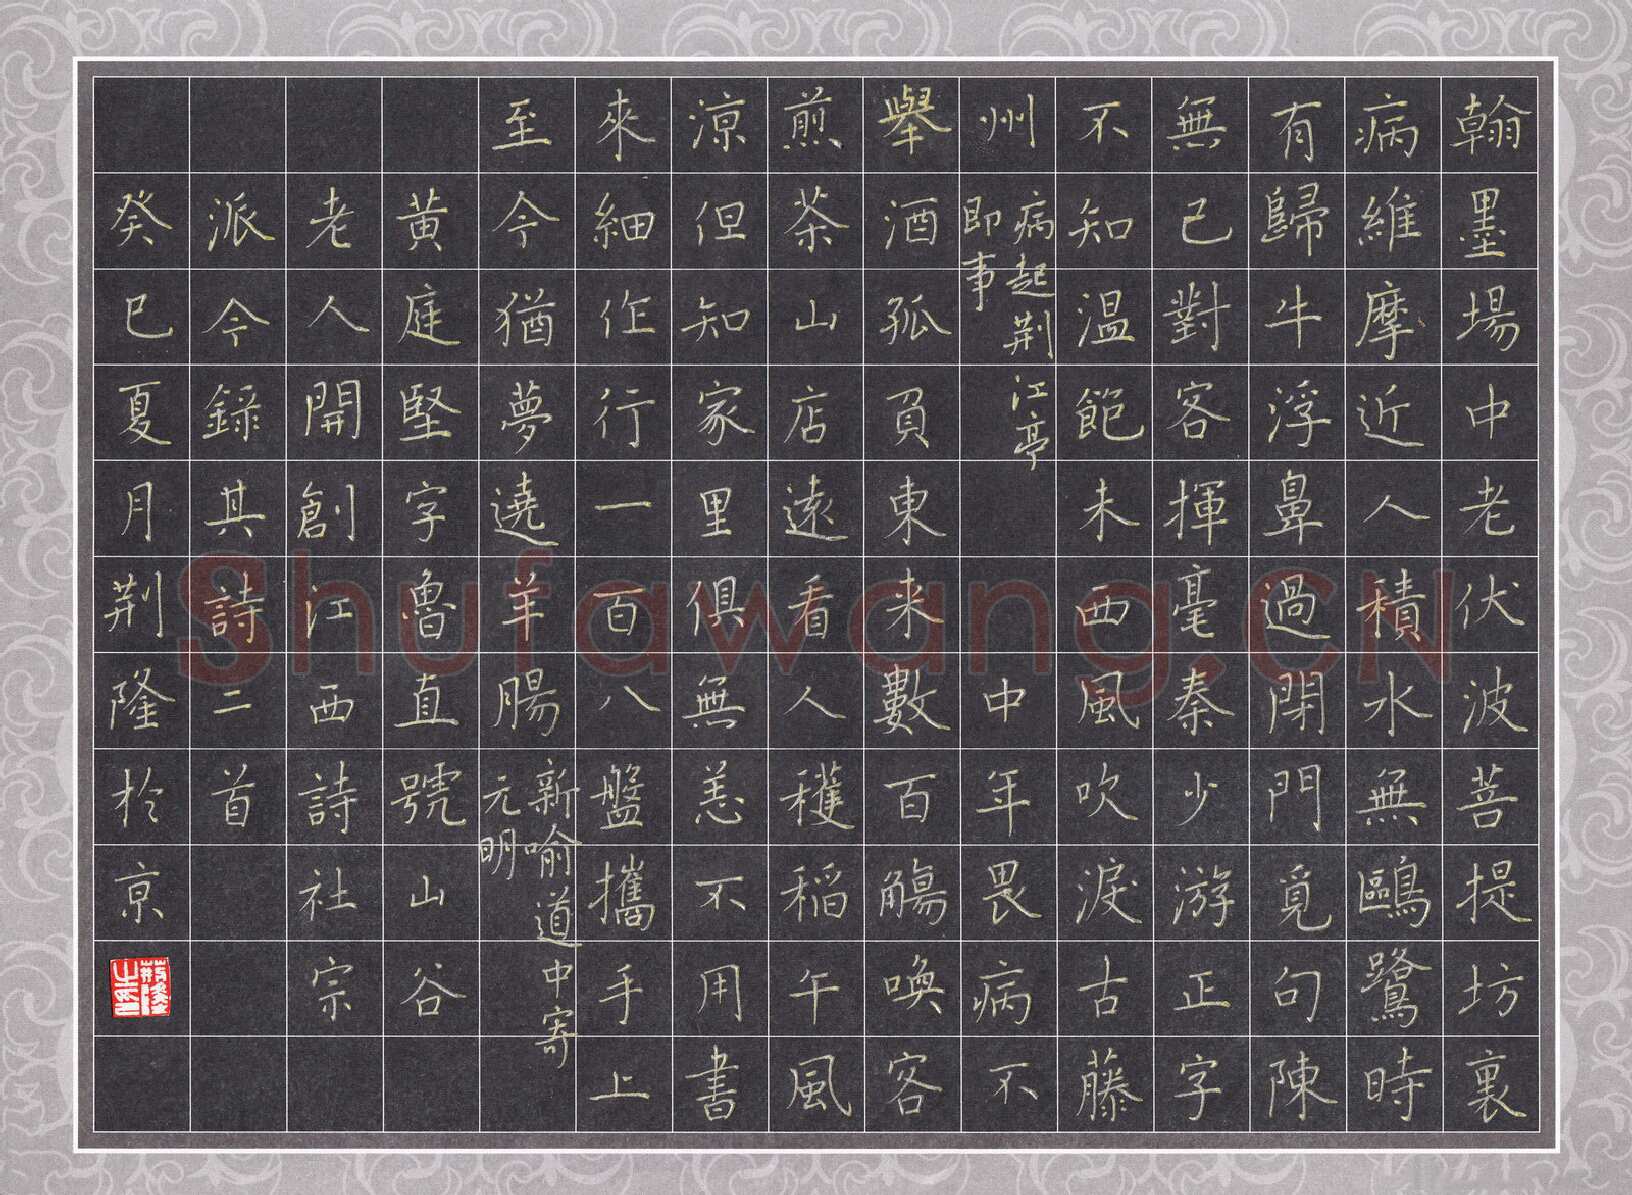 翰墨場中老伏波菩提坊裏
病維摩近人積水無鷗鷺時
有歸牛浮鼻過閉門覓句陳
無己對客揮毫秦少游正字
不知溫飽未西風吹淚古藤
州病起荆江亭即事中年畏病不
舉酒孤負東来數百觴喚客
煎茶山店遠看人穫稻午風
涼但知家里俱無恙不用書
來細作行一百八盤攜手上
至今猶夢遶羊腸新喻道中寄元明
黄庭堅字魯直號山谷
老人開創江西詩社宗
派今錄其詩二首
癸巳夏月荆隆於京
荆隆之印
Shufawang.CN